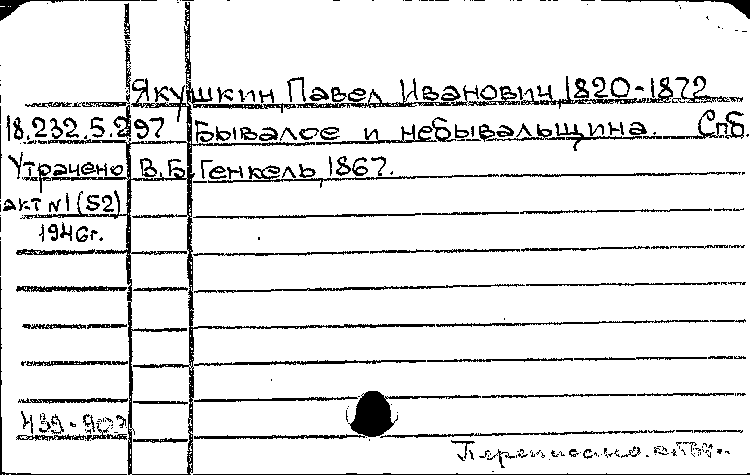 Якушкин, Павел Иванович, 1820-1872
18.232.5.297 Бывалое и небывальщина. Спб.
Утрачено В.Б. Генкель, 1867.
акт №1 (52)
1946г.
Переписано.